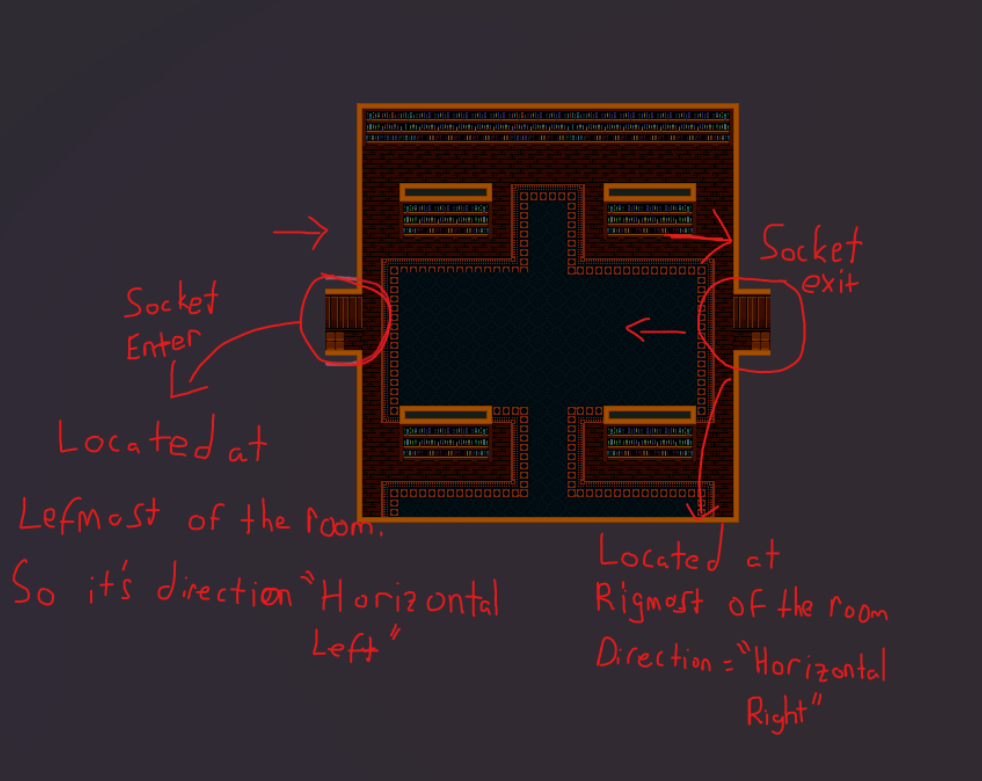 Socket
Enter
Located at
Lefmost of the room.
So it's direction "Horizontal
Left"
Socket
exit
Located at
Rigmost of the room
Direction = "Horizontal
Right"